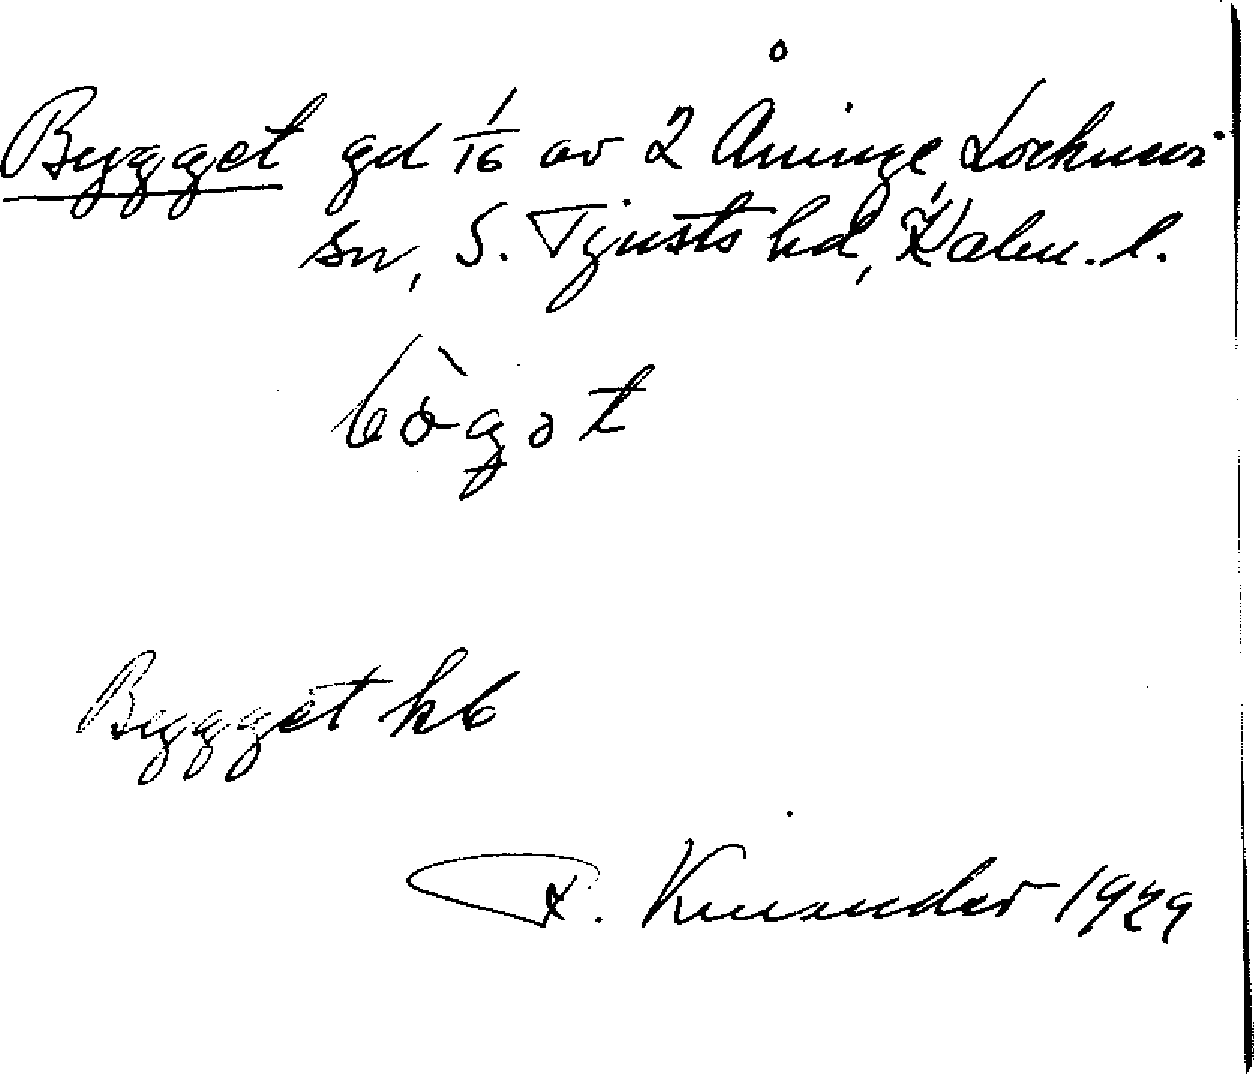 Bygget gd 1/16 av 2 Åninge, Locknevi
sn, S. Tjusts hd, Kalm. l.
bògət
Bygget kb
T. Kinander 1929